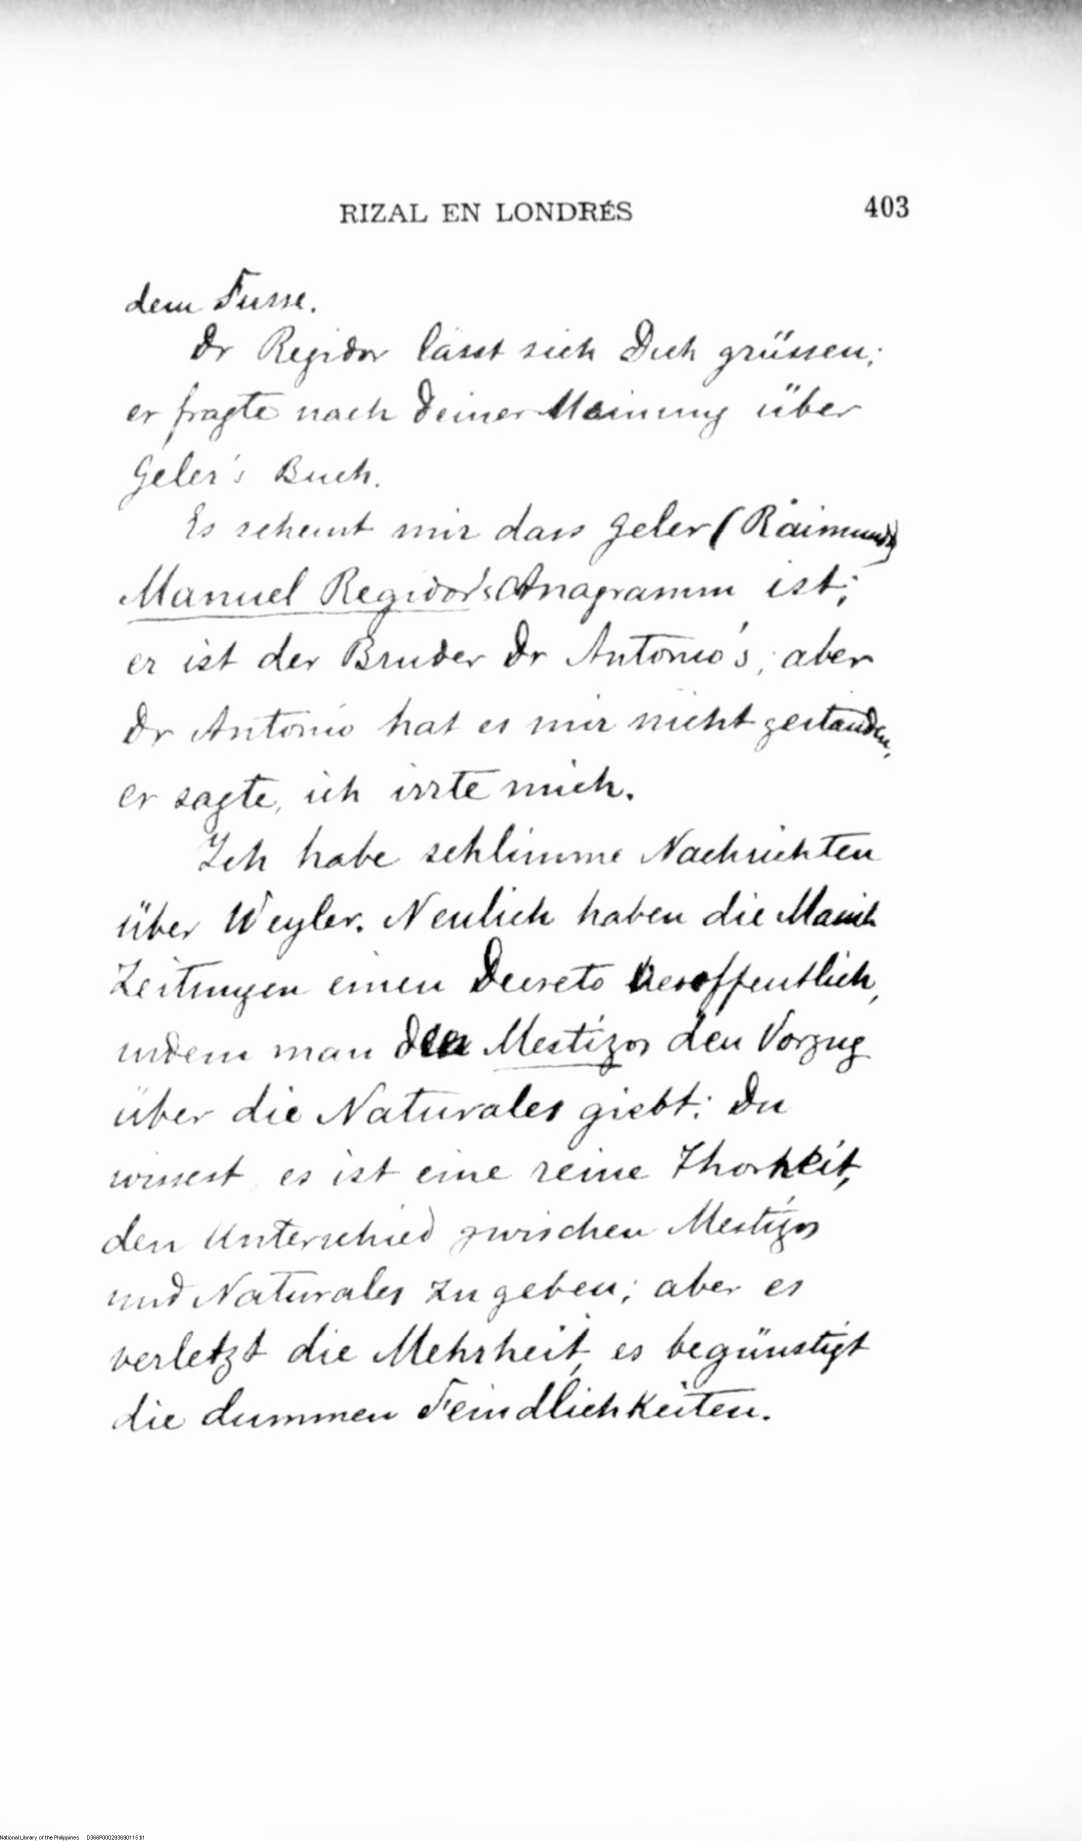 RIZAL EN LONDRÉS 403
dem Fusse.
Dr Regidor lässt sich Dich grüssen;
er fragte nach Deiner Meinung über
Geler's Buch.
Es scheint mir dass Geler (Raimundo)
Manuel Regidor's Anagramm ist;
er ist der Bruder Dr Antonio's; aber
Dr Antonio hat es mir nicht gestanden,
er sagte, ich irrte mich.
Ich habe schlimme Nachrichten
über Weyler. Neulich haben die
Zeitungen einen Decreto veroffentlich,
indem man den Mestizos den Vorzug
über die Naturales giebt: Du
wissest, es ist eine reine Thorheit,
den Unterschied zwischen Mestizos
und Naturales zu geben; aber es
verletzt die Mehrheit, es begünstigt
die dummen Feindlichkeiten.
National Library of the Philippines